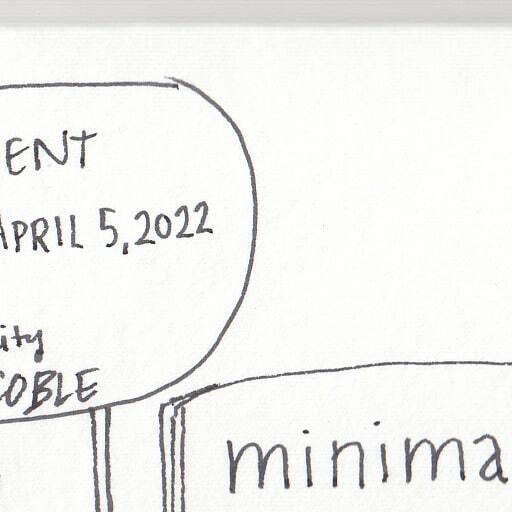 ENT
APRIL 5, 2022
ity
COBLE
minima